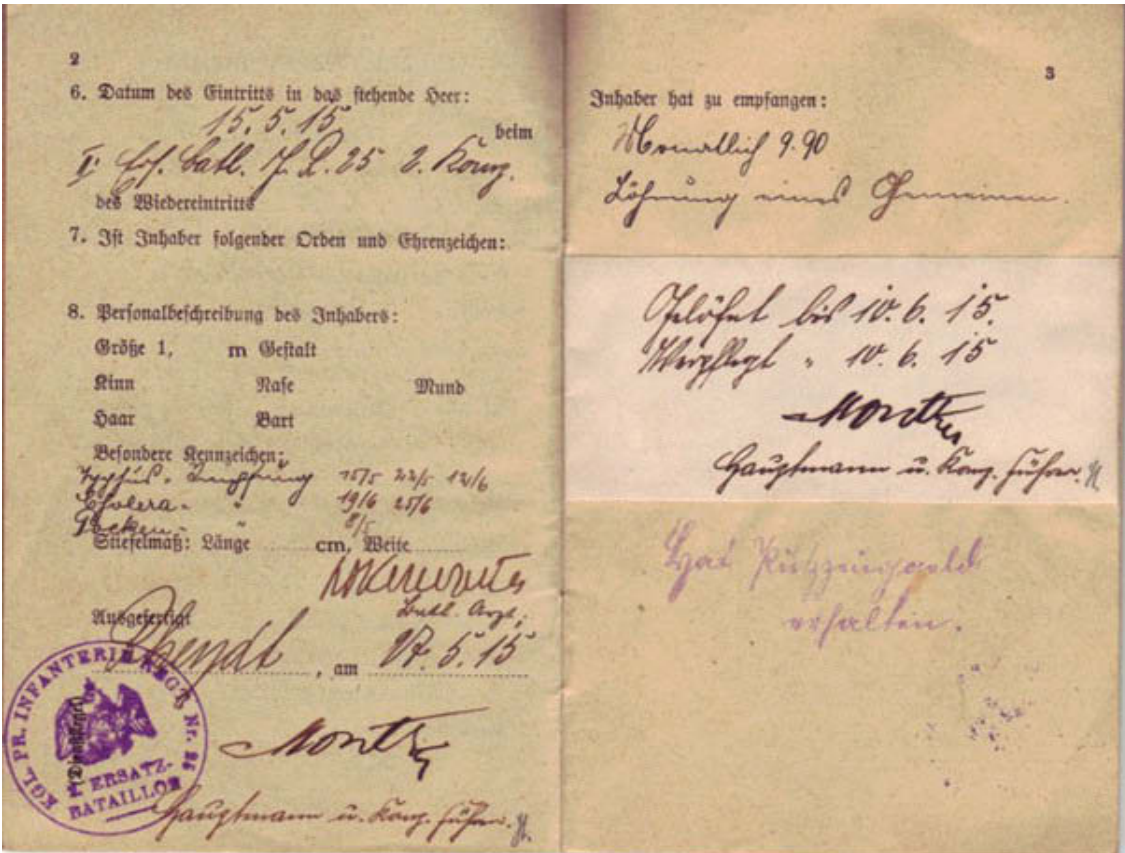 2
6. Datum des Eintritts in das stehende Heer:
15.5.15 beim
II. Ers. Batl. J. R. 25 2. Komp.
des Wiedereintritts
7. Ist Inhaber folgender Orden und Ehrenzeichen:
8. Personalbeschreibung des Inhabers:
Größe 1, m Gestalt
Kinn Nase Mund
Haar Bart
Besondere Kennzeichen:
Typhus-Impfung 15/5 22/5 12/6
Cholera- " 19/6 25/6
Pocken- 8/5
Stiefelmaß: Länge cm, Weite
Batl. Arzt.
Ausgefertigt
Rheydt, am 17.5.15
(Dienstsiegel)
KGL. PR. INFANTERIE REGT. Nr. 25
ERSATZ-
BATAILLON
Hauptmann u. Komp. Führer.
3
Inhaber hat zu empfangen:
Monatlich 9.90
Löhnung eines Gemeinen.
Gelöhnt bis 10.6.15.
Verpflegt " 10.6.15
Hauptmann u. Komp. Führer.
Hat Putzzeuggeld
erhalten.